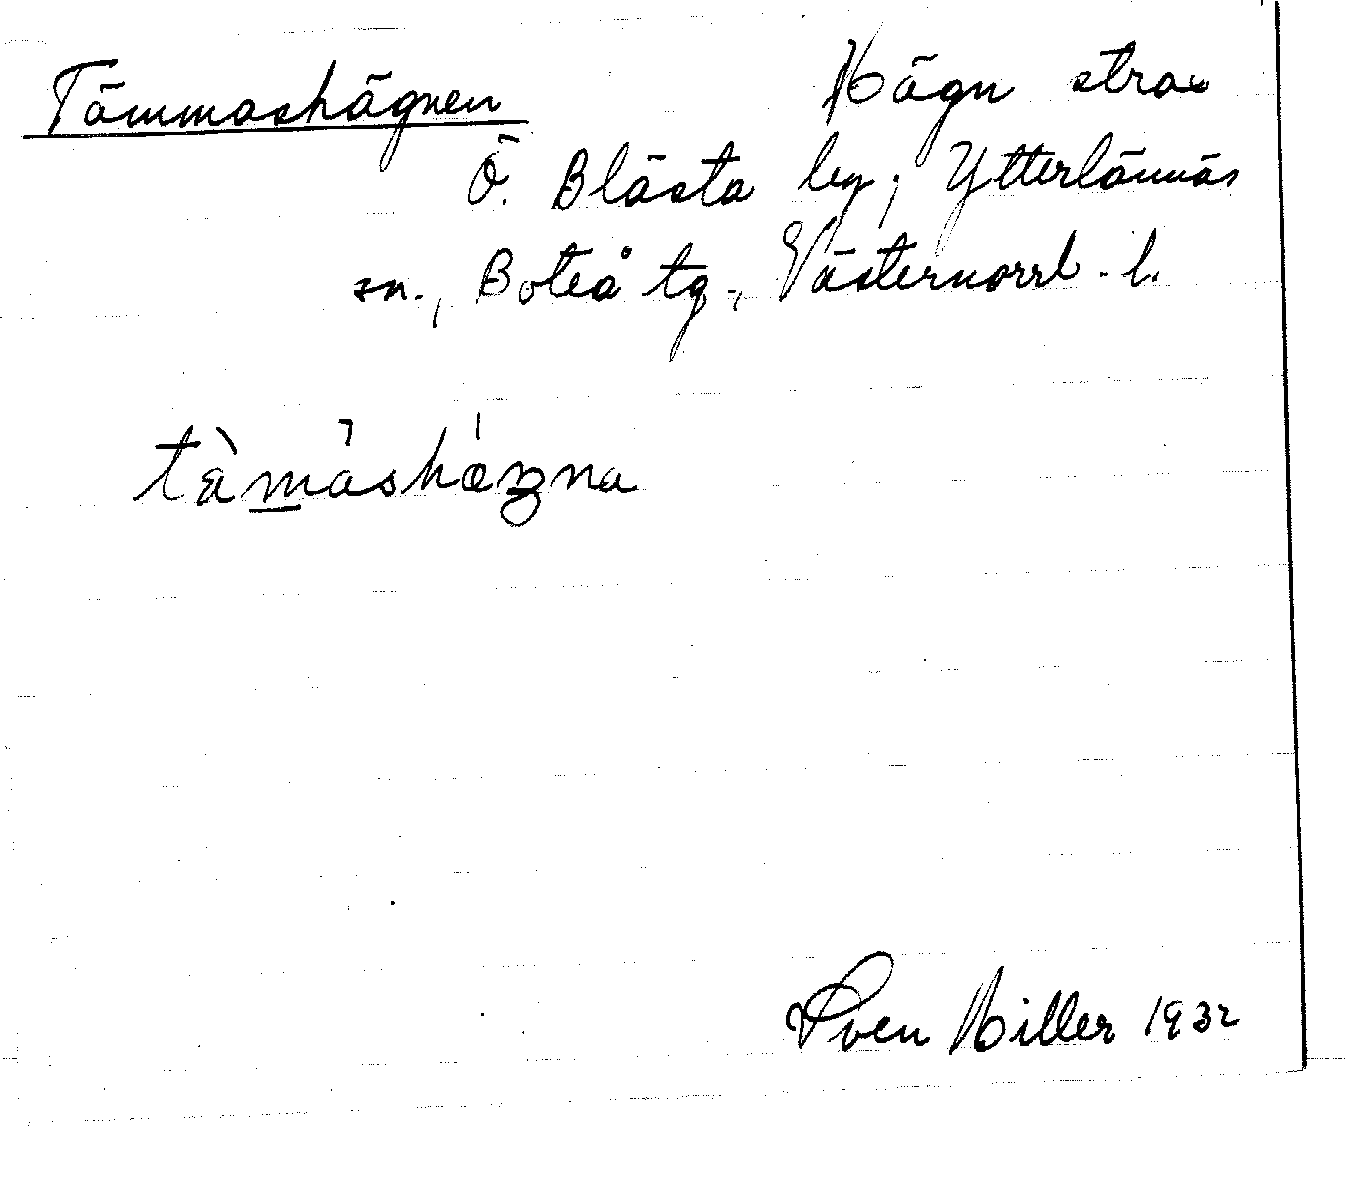 Tämmashägnen Hägn strax
Ö. Blästa by, Ytterlännäs
sn., Boteå tg., Västernorrl. l.
Sven Hiller 1932